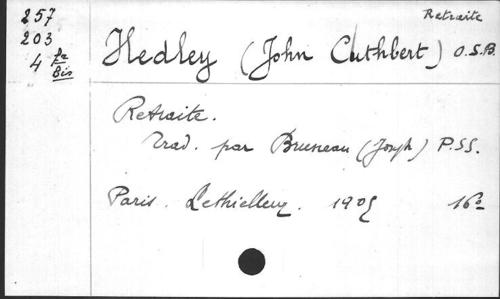 257
203
4 fr
Bis
Retraite
Hedley (John Cuthbert) O.S.B.
Retraite.
Trad. par Bruneau (Joseph) P.SS.
Paris. Lethielleux. 1905 16°